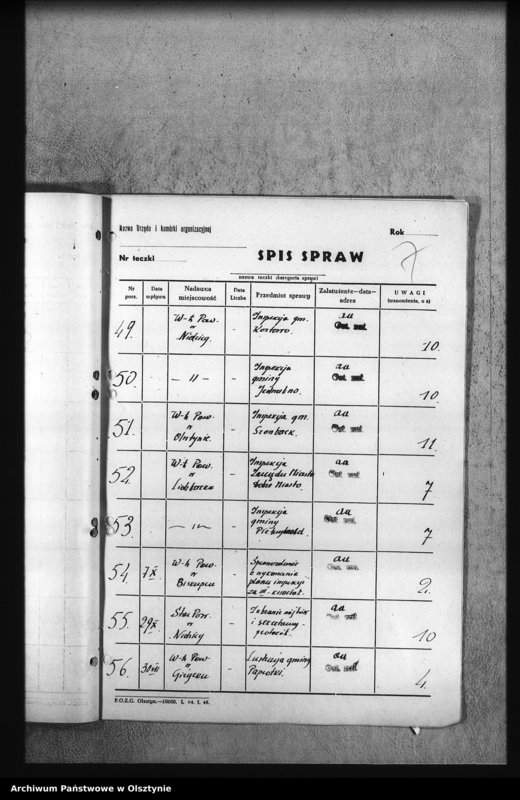 Nazwa Urzędu i komórki organizacyjnej
Rok
7
Nr teczki
SPIS SPRAW
nazwa teczki (kategoria spraw)
Nr porz. Data wpływu Nadawca miejscowość Data Liczba Przedmiot sprawy Załatwienie—data—adres UWAGI (wznowienia, o z)
49. W-ł Pow. w Nidzicy. - Inspekcja gm. aa Ost. zał. 10.
50. — " — - Inspekcja gminy Jedwabno. aa Ost. zał. 10.
51. W-ł Pow. w Olsztynie. - Inspekcja gm. aa Ost. zał. 11.
52. W-ł Pow. w - Inspekcja Miasto Miasto. aa Ost. zał. 7
53. — " — - Inspekcja gminy aa Ost. zał. 7
54. 7 X W-ł Pow. w Biskupcu - Sprawozdanie z wykonania planu inspekcji za III kwartał. aa Ost. zał. 2.
55. 29 X Star. Pow. w Nidzicy - Zebranie wójtów i sekretarzy protokół. aa zał. 10
56. 30 W-ł Pow. w Giżycku - Lustracja gminy aa Ost. zał. 4.
P.O.Z.G. Olsztyn.—10000. I. 64. I. 48.
Archiwum Państwowe w Olsztynie